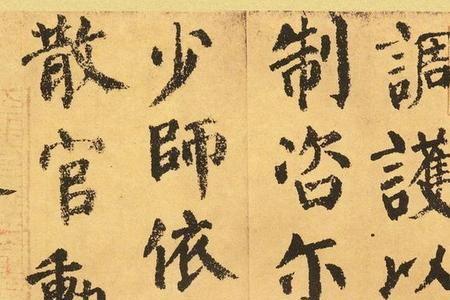 調護以
制咨尓
少師依
散官勳